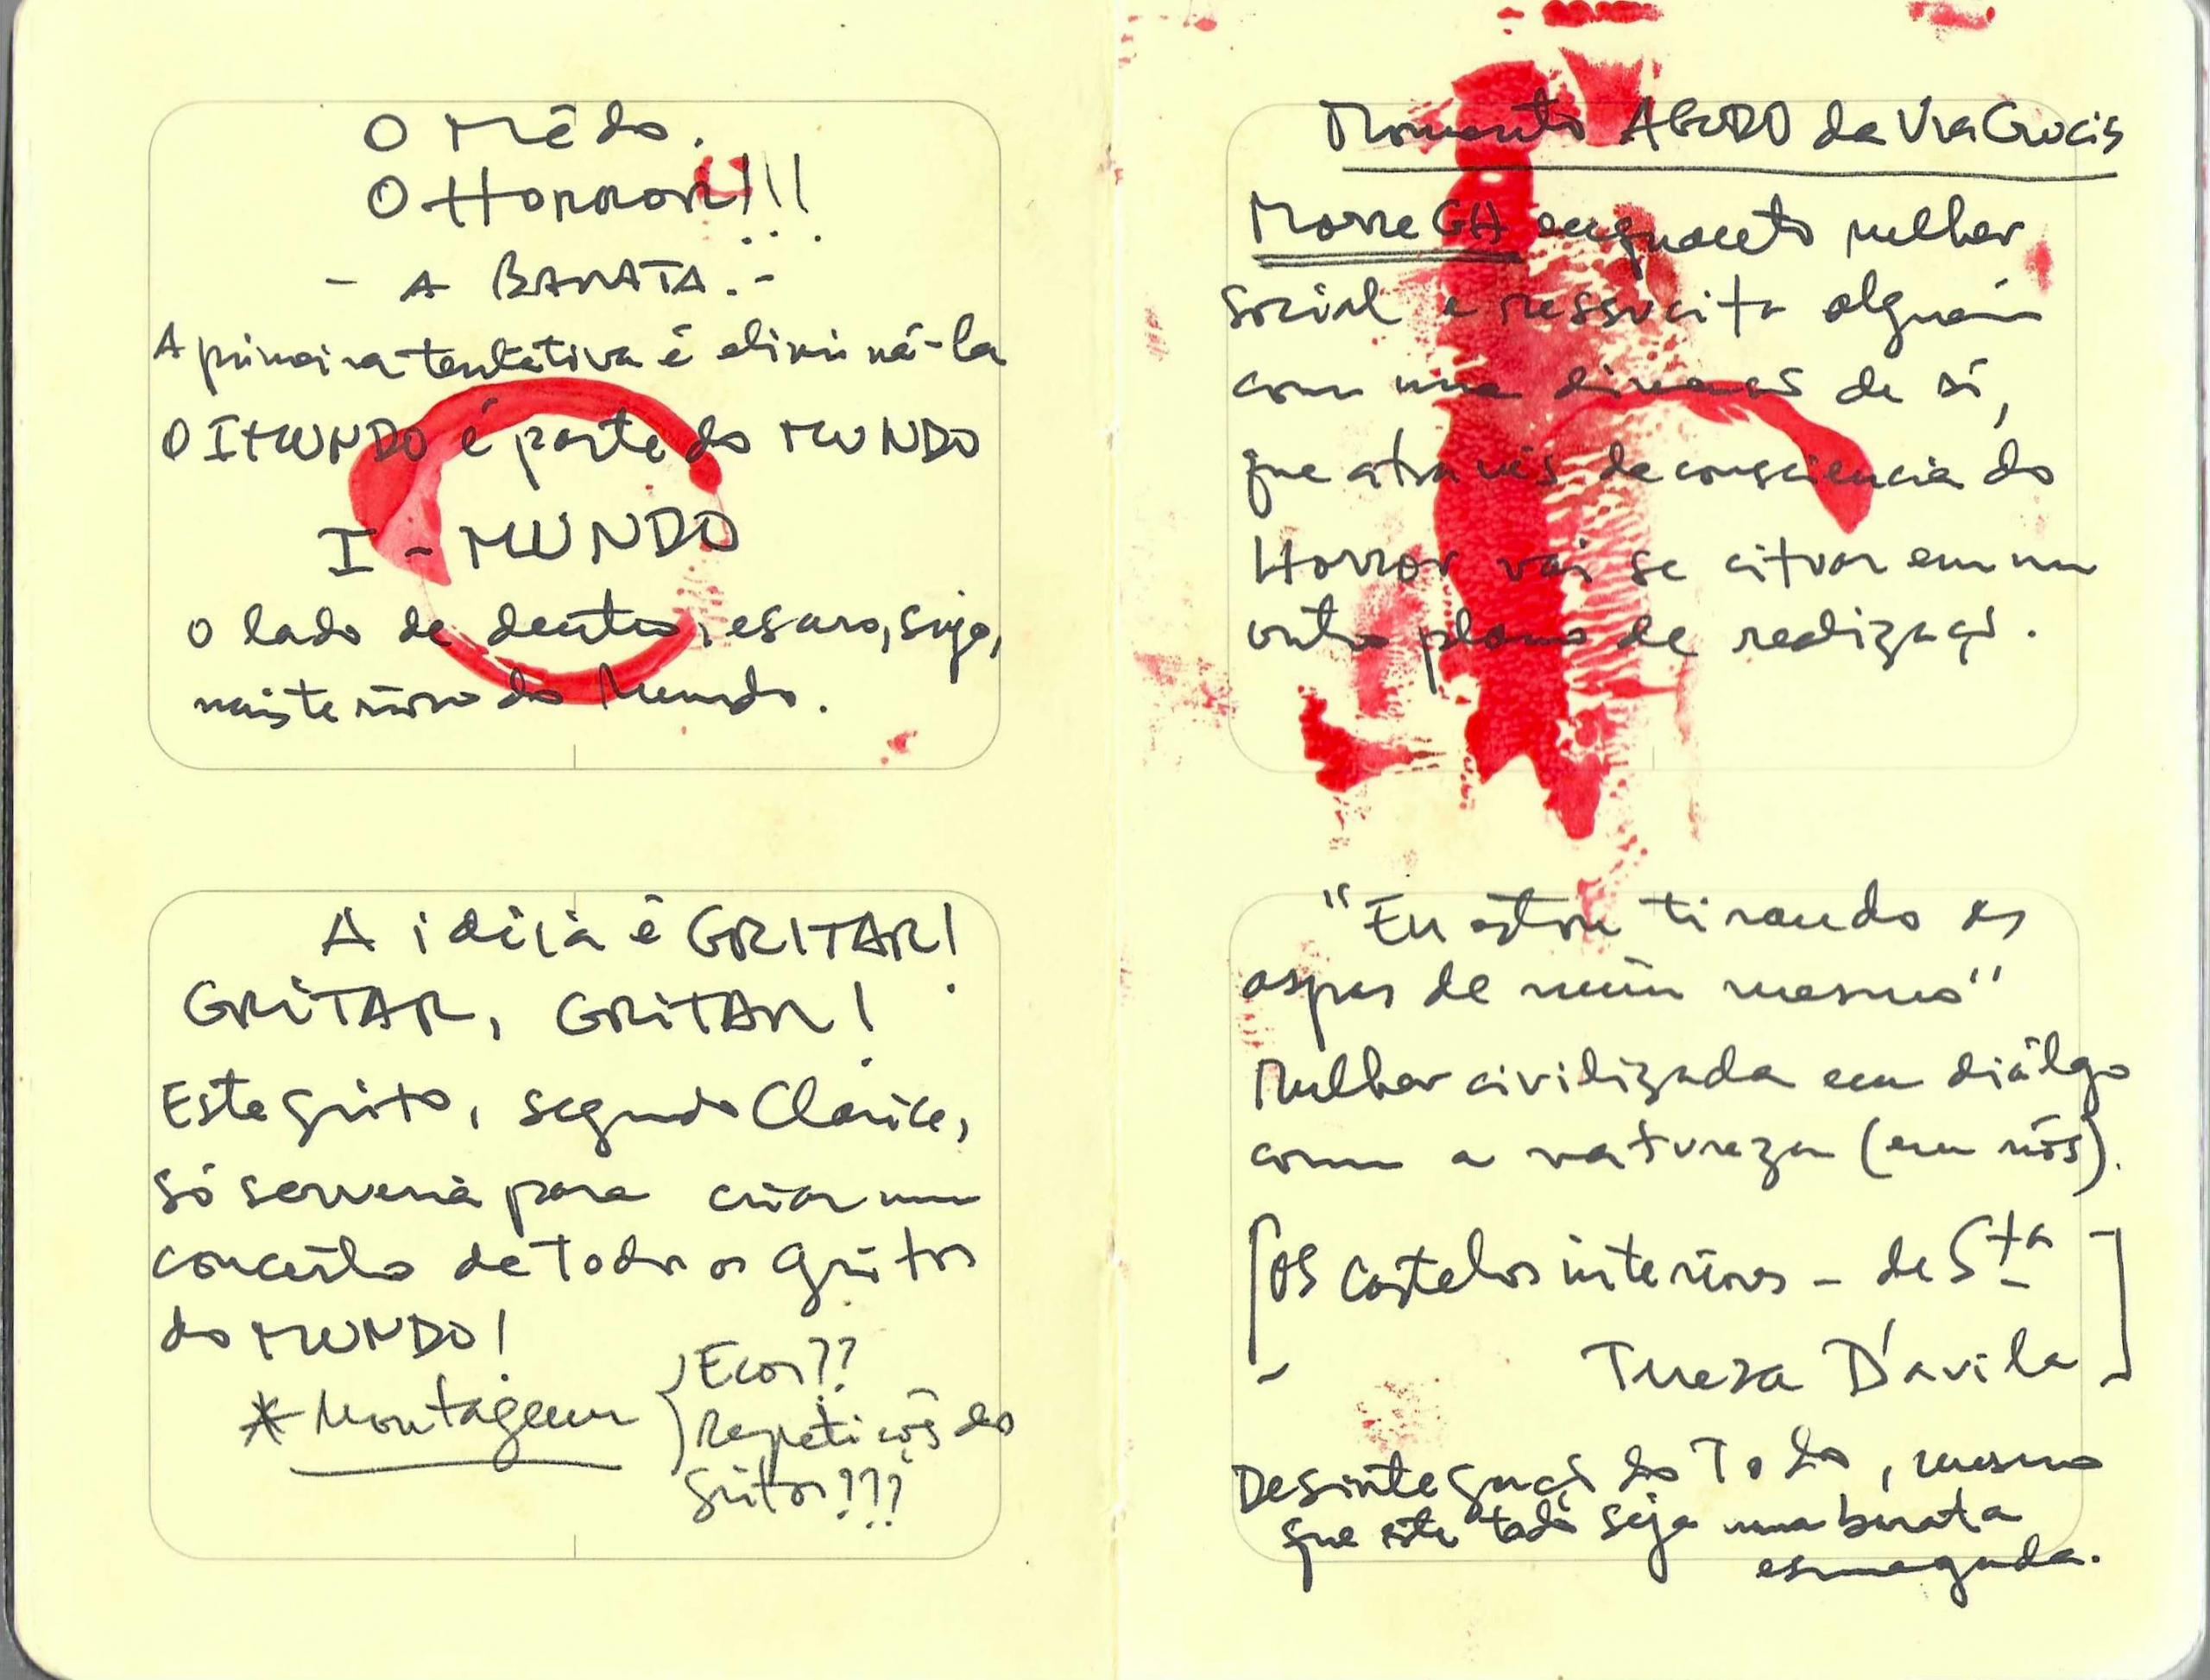 O Mêdo.
O HORROR!!!
- A BARATA. -
A primeira tentativa é eliminá-la
O IMUNDO é parte do MUNDO
I - MUNDO
o lado de dentro, escuro, sujo,
misterioso do Mundo.
A idéia é GRITAR!
GRITAR, GRITAR!
Este grito, segundo Clarice,
só serveria para criar um
concerto de todos os gritos
do MUNDO!
* Montagem } Ecos??
Repetições dos
gritos???
Momento AGUDO da Via Crucis
Morre GH enquanto mulher
social e ressucita alguém
com uma de si,
que através da consciencia do
Horror vai se citvar em um
outro plano de realizaçõ.
"Eu estou tirando as
aspas de mim mesmo"
Mulher civilizada em diálgo
com a natureza (em nós).
[OS Castelos interiores - de Sta
Tereza D'avila]
Desintegração do Todo, mesmo
que este todo seja uma barata
esmagada.